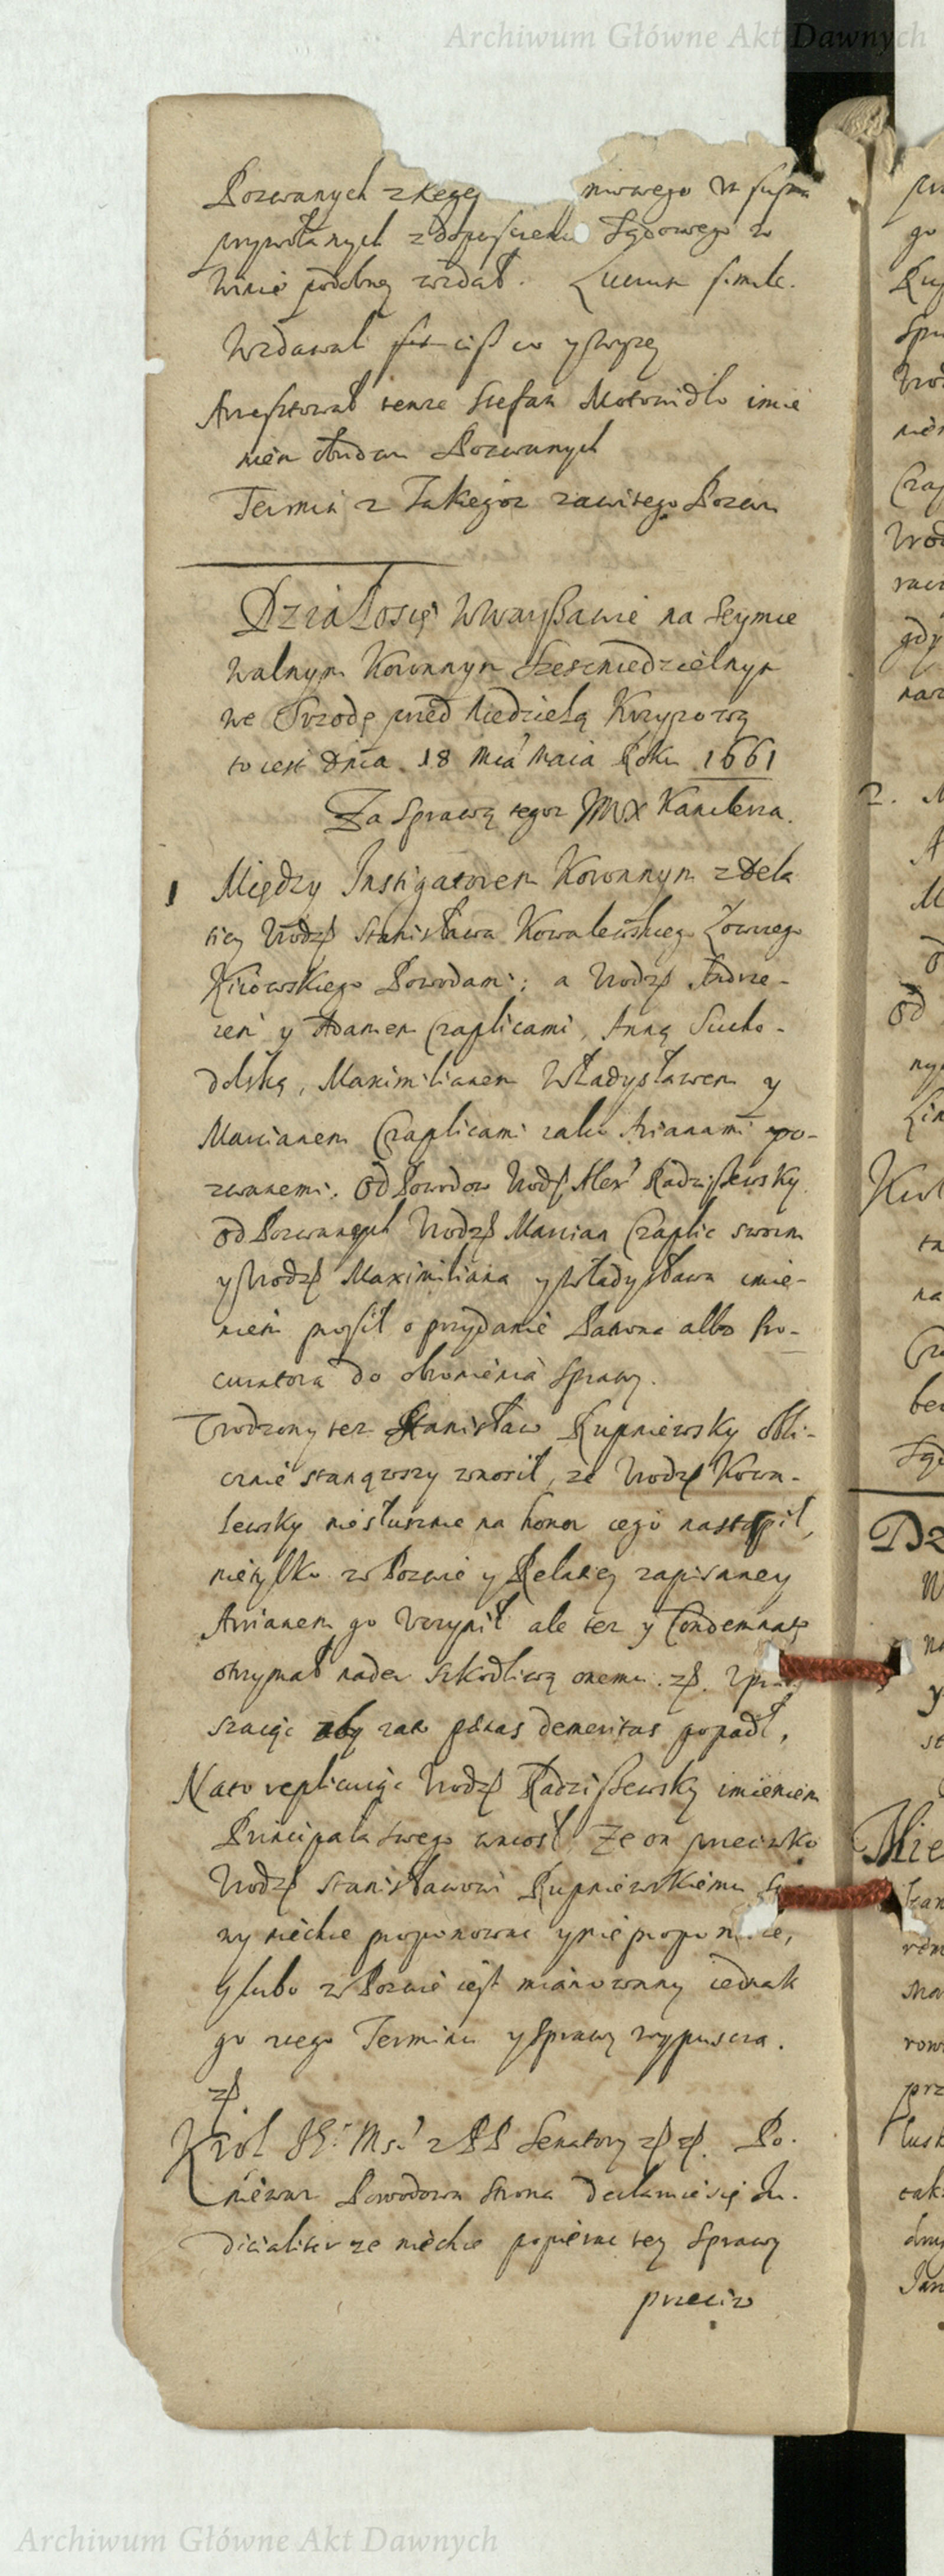 Archiwum Główne Akt Dawnych
Pozwanych z niowego
przywołanych z dopuscenia Sądowego w
winie podobney wzdał. Lucrum simile.
Wzdawał ciż co y wyzey
Aresztował tenze Stefan Motowidło imie
niem Pozwanych
Termin z Takiegoz zawitego Pozwu
Działo się w Warszawie na Seymie
Walnym Koronnym Szescniedzielnym
we Srzodę przed Niedzielą Krzyzową
to iest dnia 18 Mca Maia Roku 1661
Za Sprawą tegoz JMX Kanclerza.
1 Między Instigatorem Koronnym z dela
ticy Urodz Stanisława Kowalewskiego Łowczego
Kiiowskiego Powodami; a Urodz Andrze-
iem y Adamem Czaplicami, Anną Sucho-
dolską, Maximilianem Władysławem y
Marcianem Czaplicami iako Arianami po-
zwanemi. Od Powodow Urodz Alex Radziszewsky
od Pozwanych Urodz Marcian Czaplic swoim
y Urodz Maximiliana y Władysława imie-
niem prosił o przydanie Patrona albo Pro-
curatora do obronienia Sprawy.
Urodzony tez Stanisław Kupniewsky obli-
cznie stanąwszy wnosił, ze Urodz Kowa-
lewsky niesłusznie na honor iego nastąpił,
nietylko w Pozwie y Relatiey zapisaney
Arianem go uczynił ale tez y Condemnatę
otrzymał nader szkodliwą onemu. zp.
szaiąc aby zato pænas demeritas popadł.
Na to replicuiąc Urodz Radziszewsky imieniem
Principała swego wniosł, Ze on przeciwko
Urodz Stanisławowi Kupniewskiemu
ny niechce proponowac y nie proponuie,
y lubo w Pozwie iest mianowany iednak
go z tego Terminu y Sprawy wypuscza.
zp.
Krol JE Mść z PP Senatory zp zp. Po-
niewaz Powodowa Strona declaruie się Ju-
dicialiter ze niechce popierac tey Sprawy
przeciw
Archiwum Główne Akt Dawnych